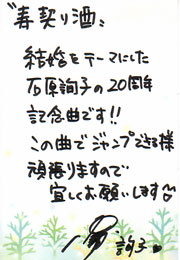 〝寿契り酒〟
結婚をテーマにした
石原詢子の20周年
記念曲です!!
この曲でジャンプできる様
頑張りますので
宜しくお願いします
詢子